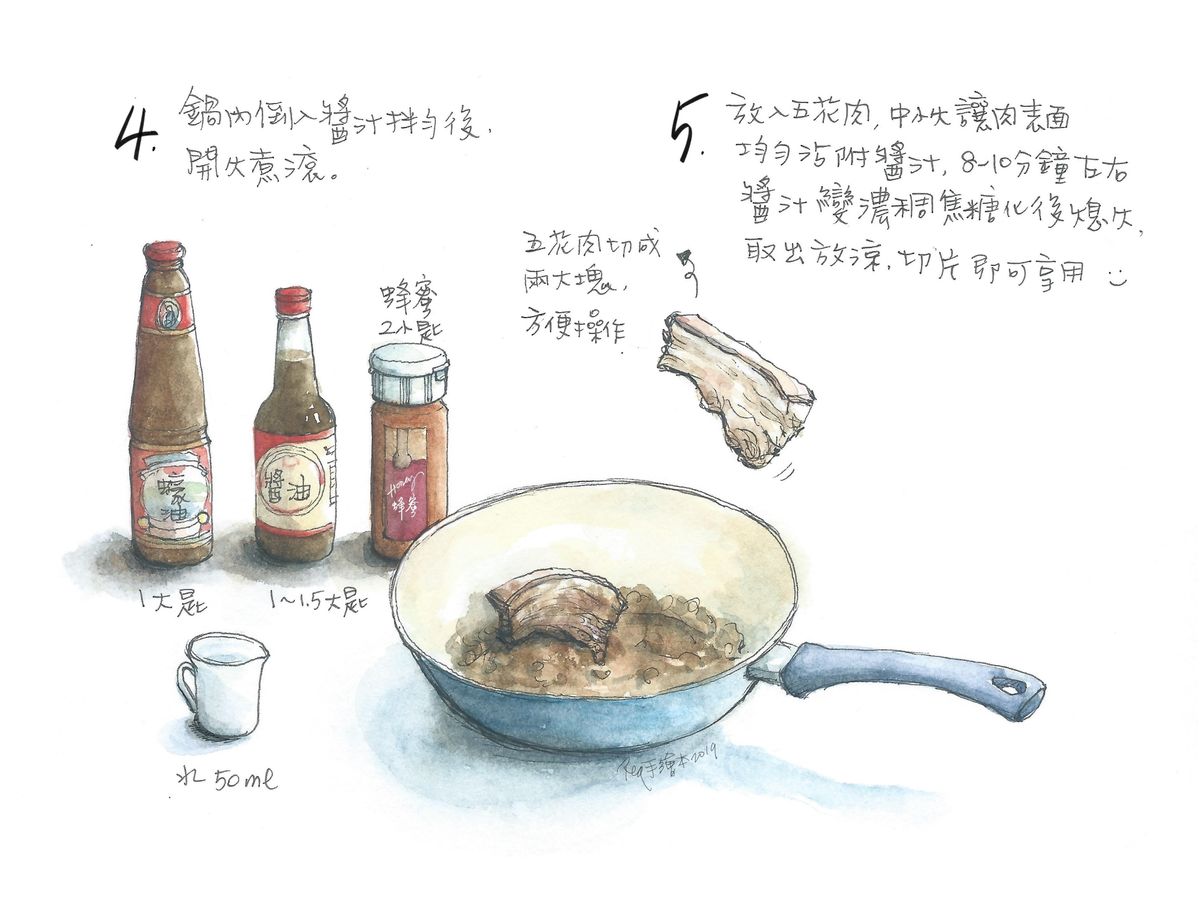 4. 鍋內倒入醬汁拌勻後,
開火煮滾。
5. 放入五花肉, 中小火讓肉表面
均勻沾附醬汁, 8~10分鐘左右
醬汁變濃稠焦糖化後熄火,
取出放涼, 切片即可享用
五花肉切成
兩大塊,
方便操作
蜂蜜
2小匙
蠔油
醬油
Honey
蜂蜜
1大匙
1~1.5大匙
水 50ml
手繪本2019